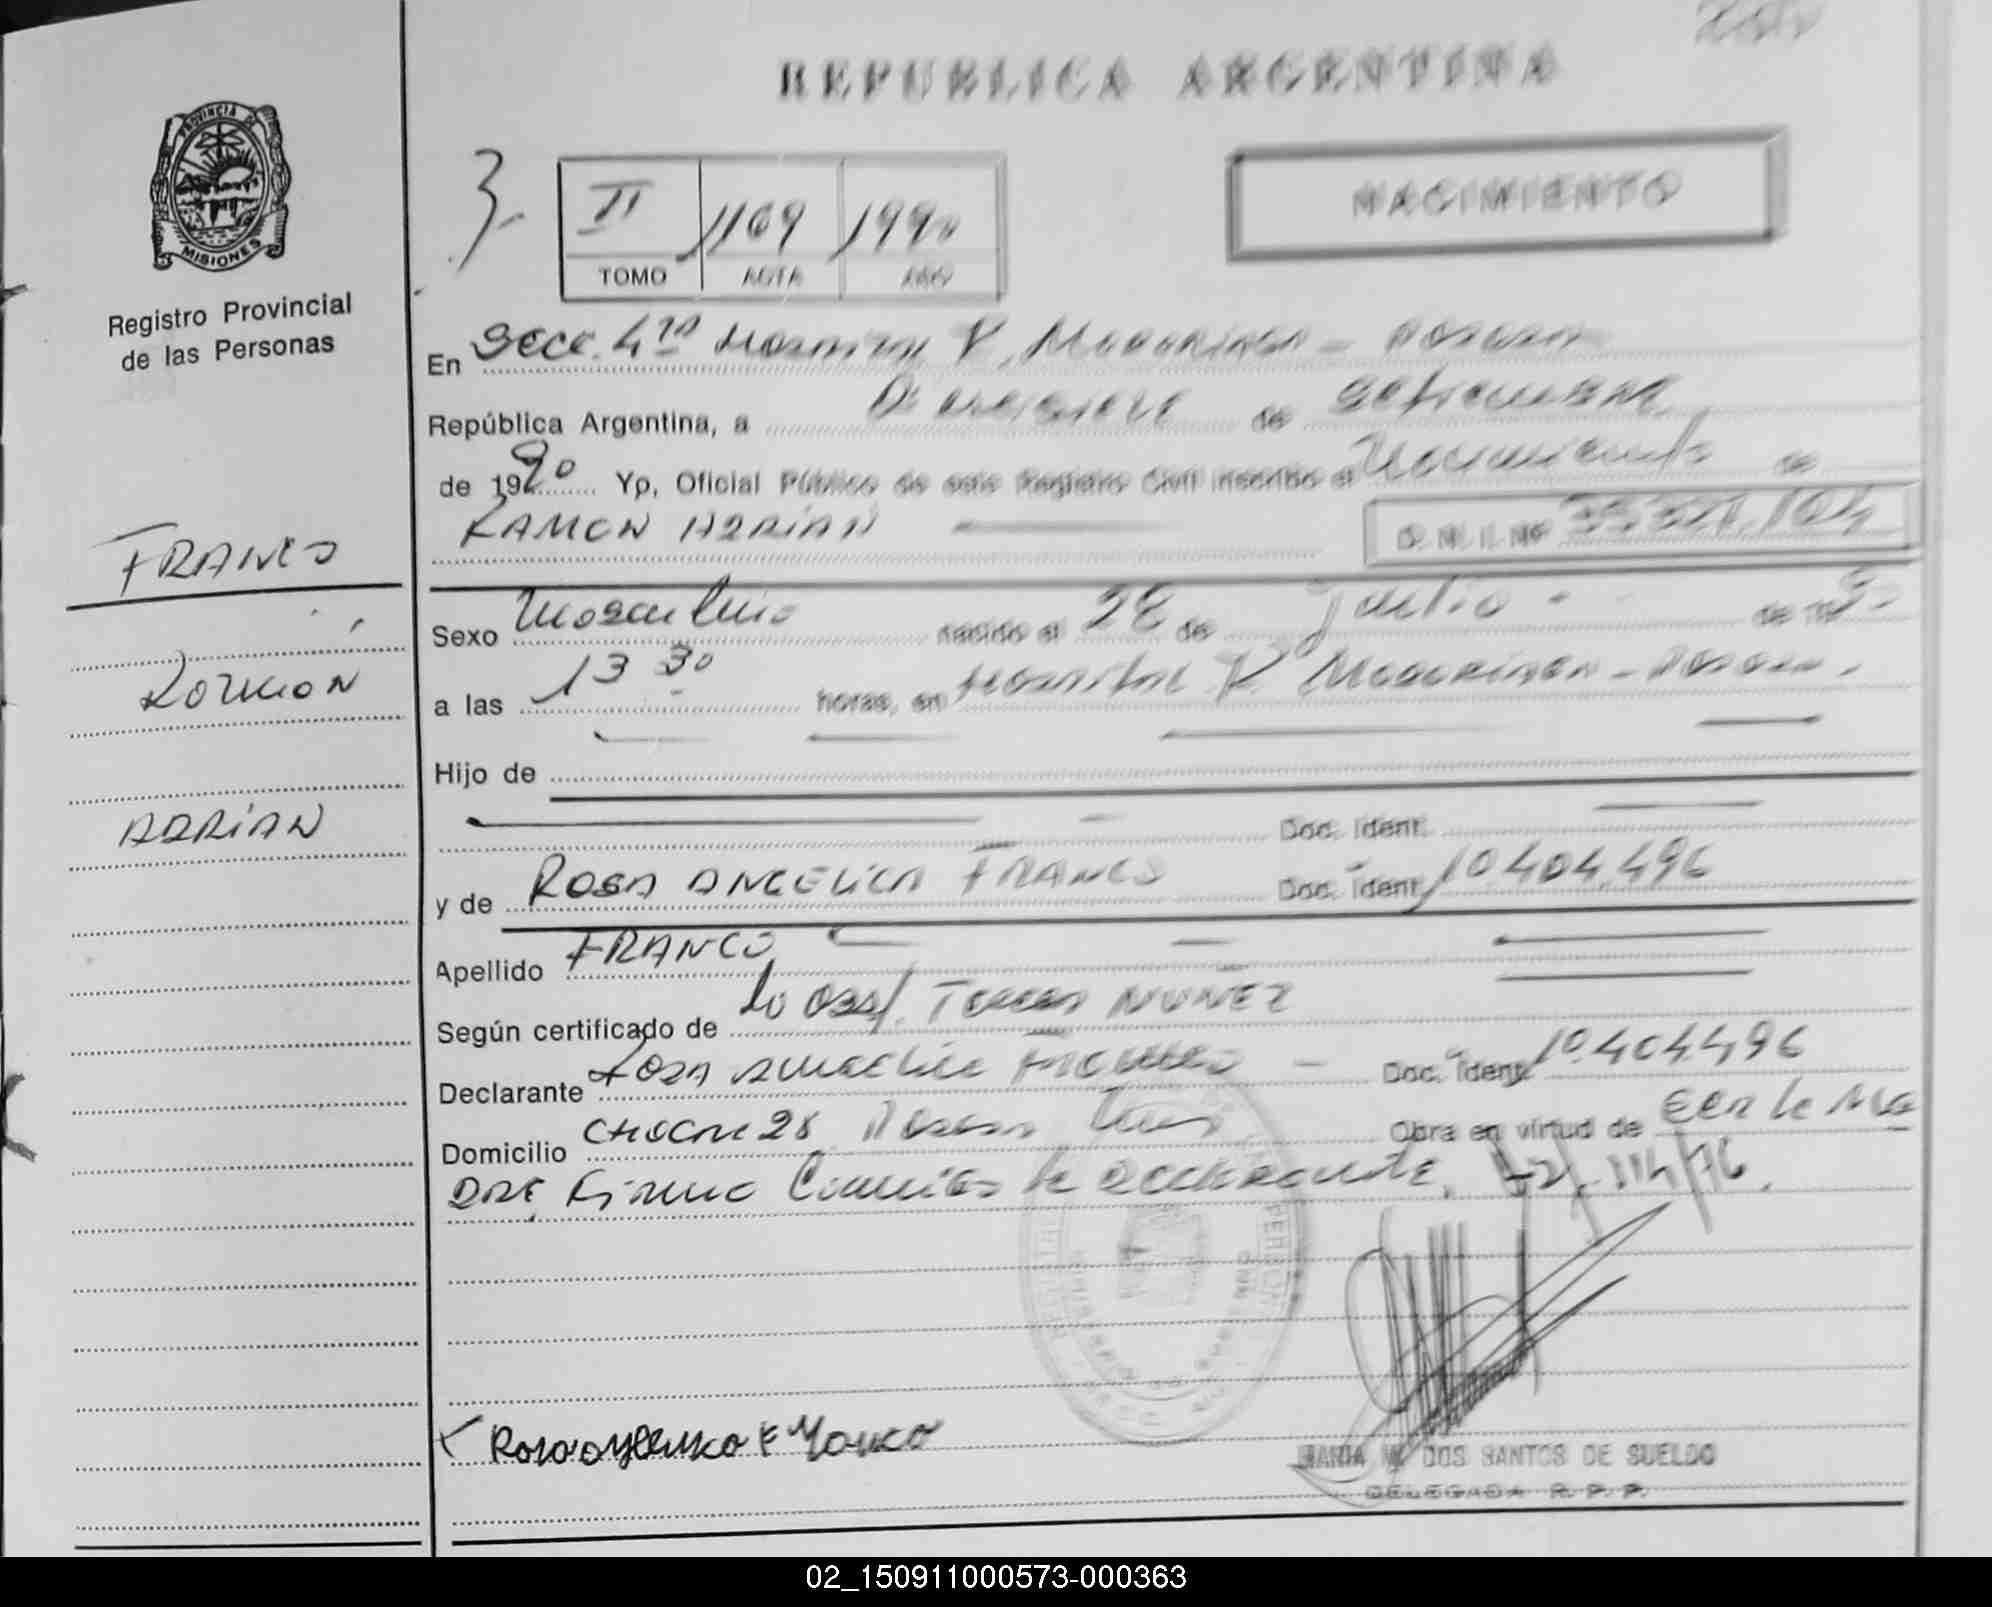 REPUBLICA ARGENTINA
PROVINCIA DE
MISIONES
Registro Provincial
de las Personas
3.
II 1169 1990
TOMO ACTA AÑO
NACIMIENTO
En Secc. 4ta Hospital R. Madariaga - Posadas
República Argentina, a Diecisiete de Setiembre
de 1990 Yo, Oficial Público de este Registro Civil inscribo el Nacimiento de
RAMON ADRIAN
D.N.I. Nº
FRANCO
RAMON
ADRIAN
Sexo Masculino nacido el 28 de Julio de 1990
a las 13 30 horas, en Hospital R. Madariaga - Posadas.
Hijo de
Doc. Ident.
y de ROSA ANGELICA FRANCO Doc. Ident. 10.404.496
Apellido FRANCO
Según certificado de La Obst. Teresa NUÑEZ
Declarante ROSA ANGELICA FRANCO - Doc. Ident. 10.404.496
Domicilio Chacra 28 Posadas Mnes Obra en virtud de Ser la Ma
dre, Firma Conmigo la declarante.
Rosa Angelica Franco
MARIA M. DOS SANTOS DE SUELDO
DELEGADA R.P.P.
02_150911000573-000363